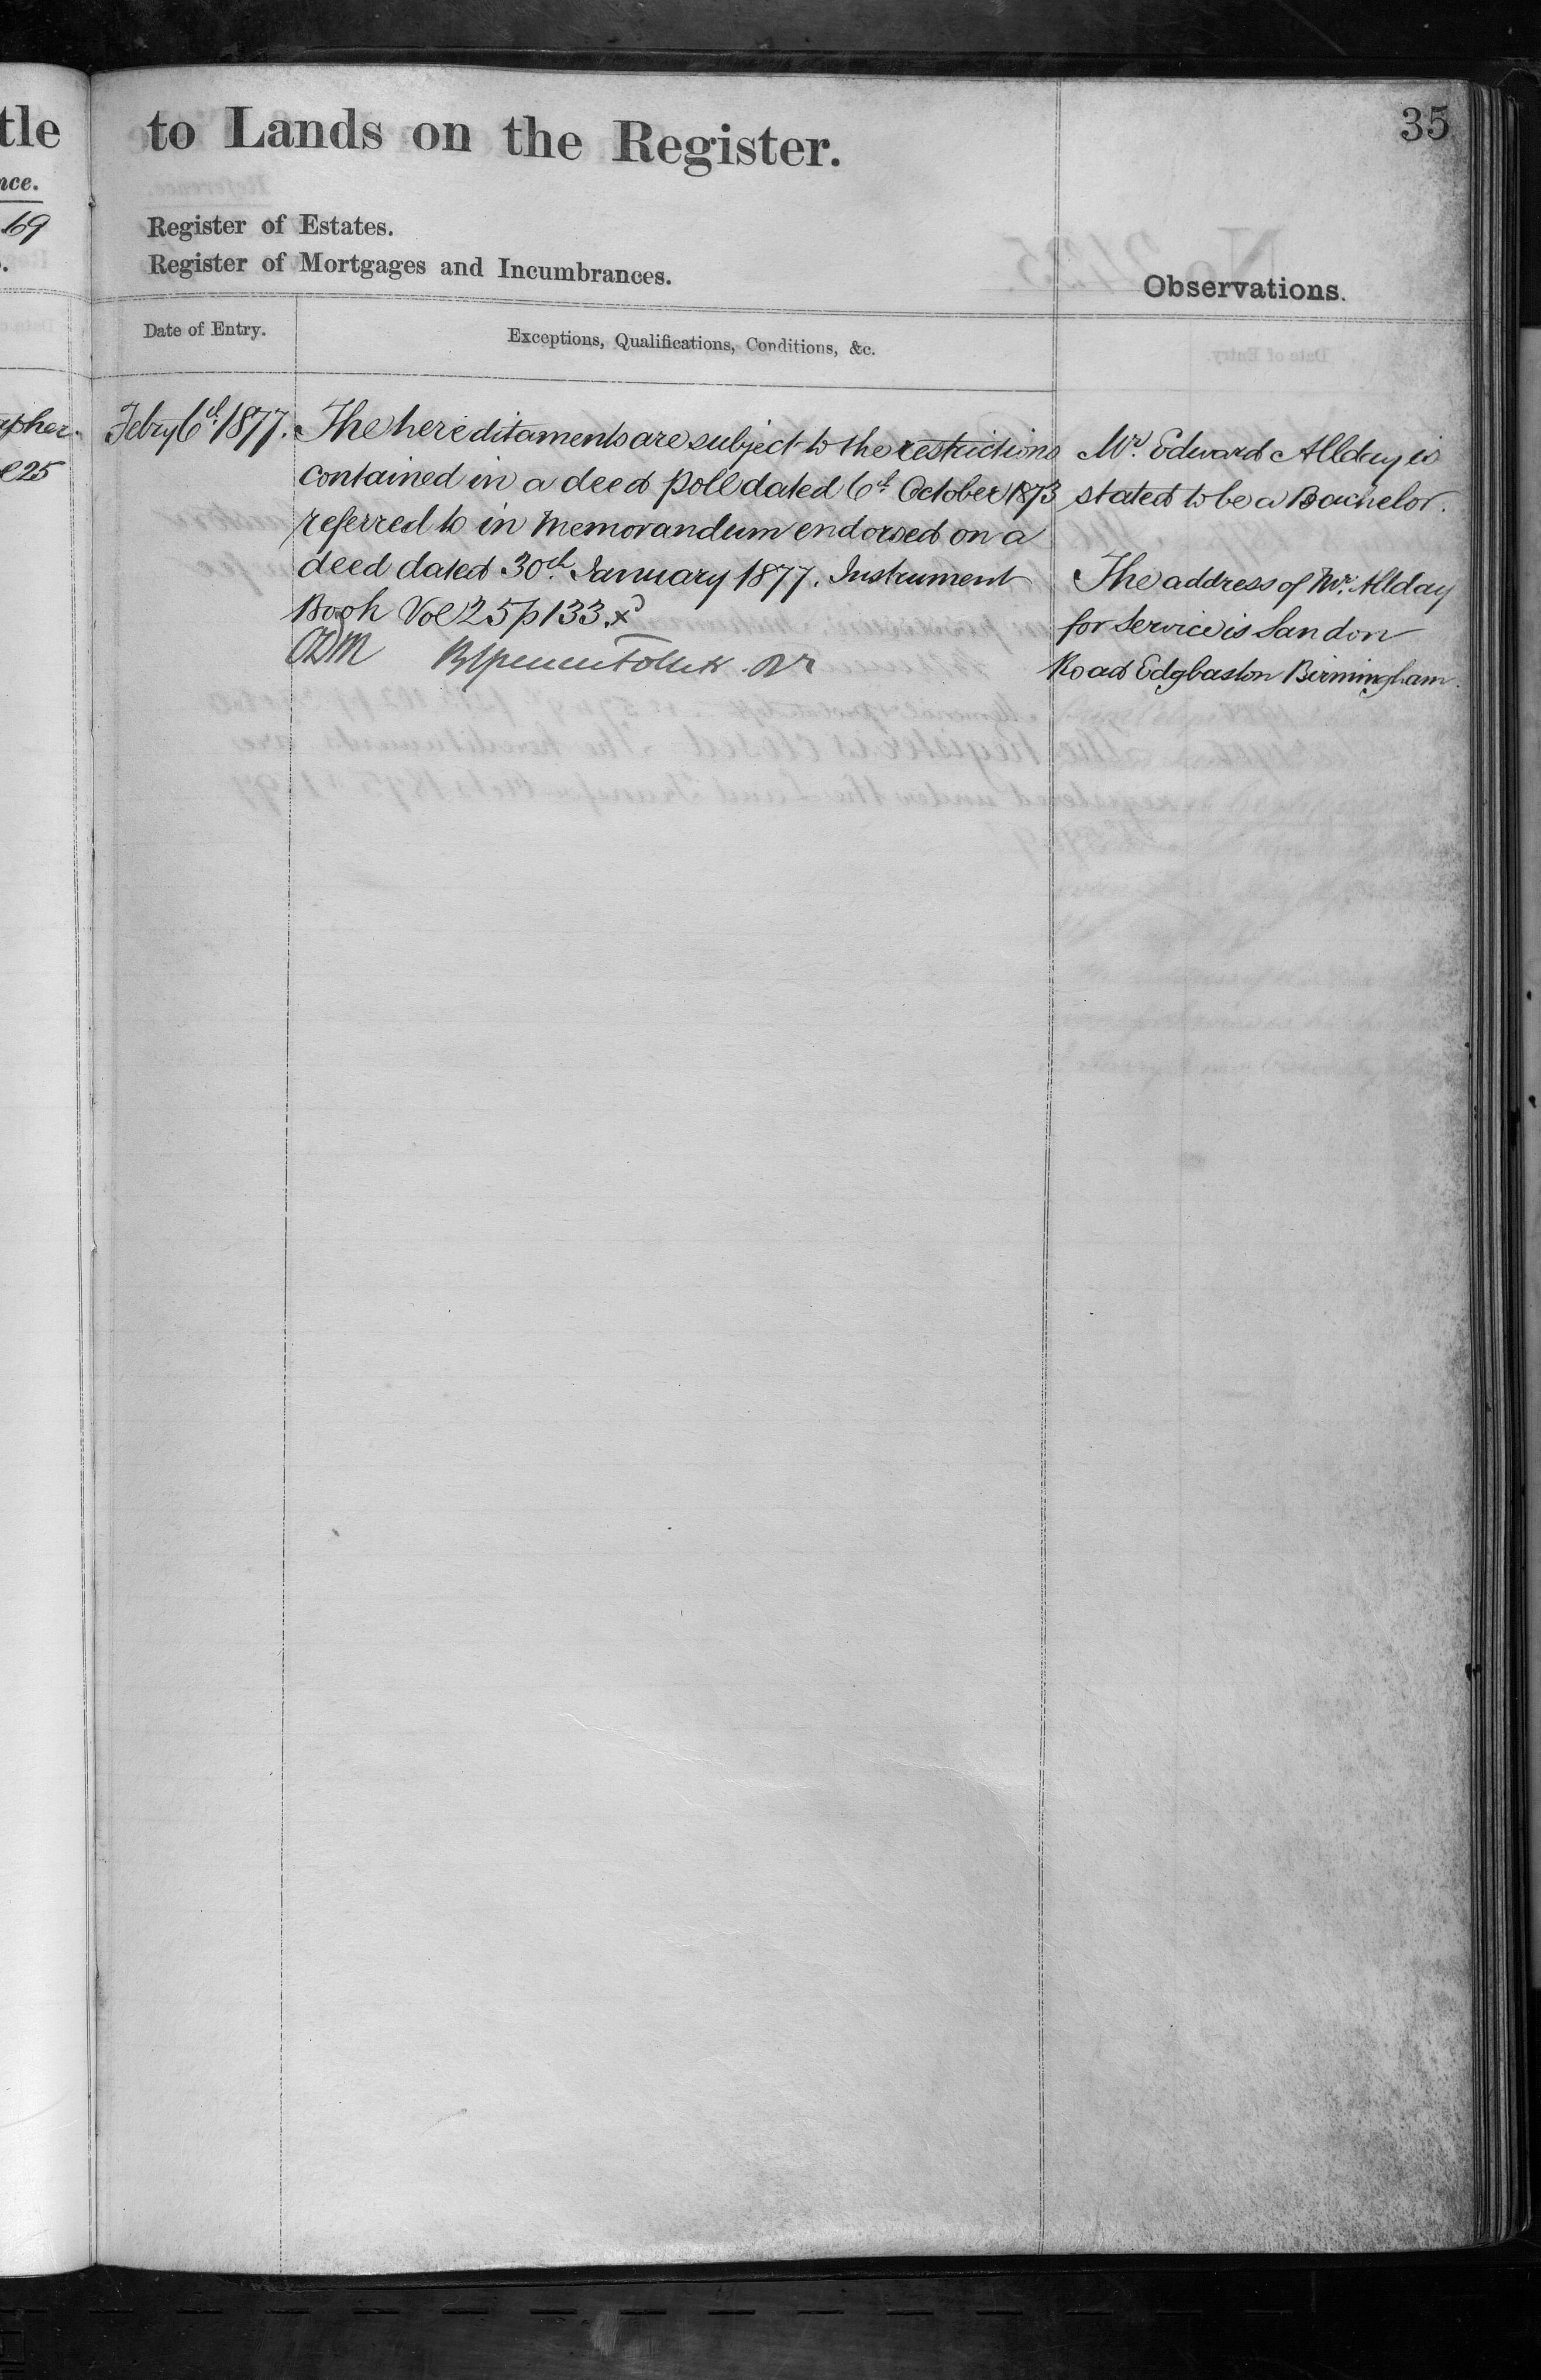 tle
nce.
69
pher.
25
to Lands on the Register.
35
Register of Estates.
Register of Mortgages and Incumbrances.
Observations.
Date of Entry.
Exceptions, Qualifications, Conditions, &c.
Febry 6th 1877. The hereditaments are subject to the restrictions
contained in a deed poll dated 6th October 1873
referred to in Memorandum endorsed on a
deed dated 30th January 1877. Instrument
Book Vol 25 p 133.
Mr. Edward Allday is
stated to be a Bachelor.
The address of Mr. Allday
for Service is Sandon
Road Edgbaston Birmingham.